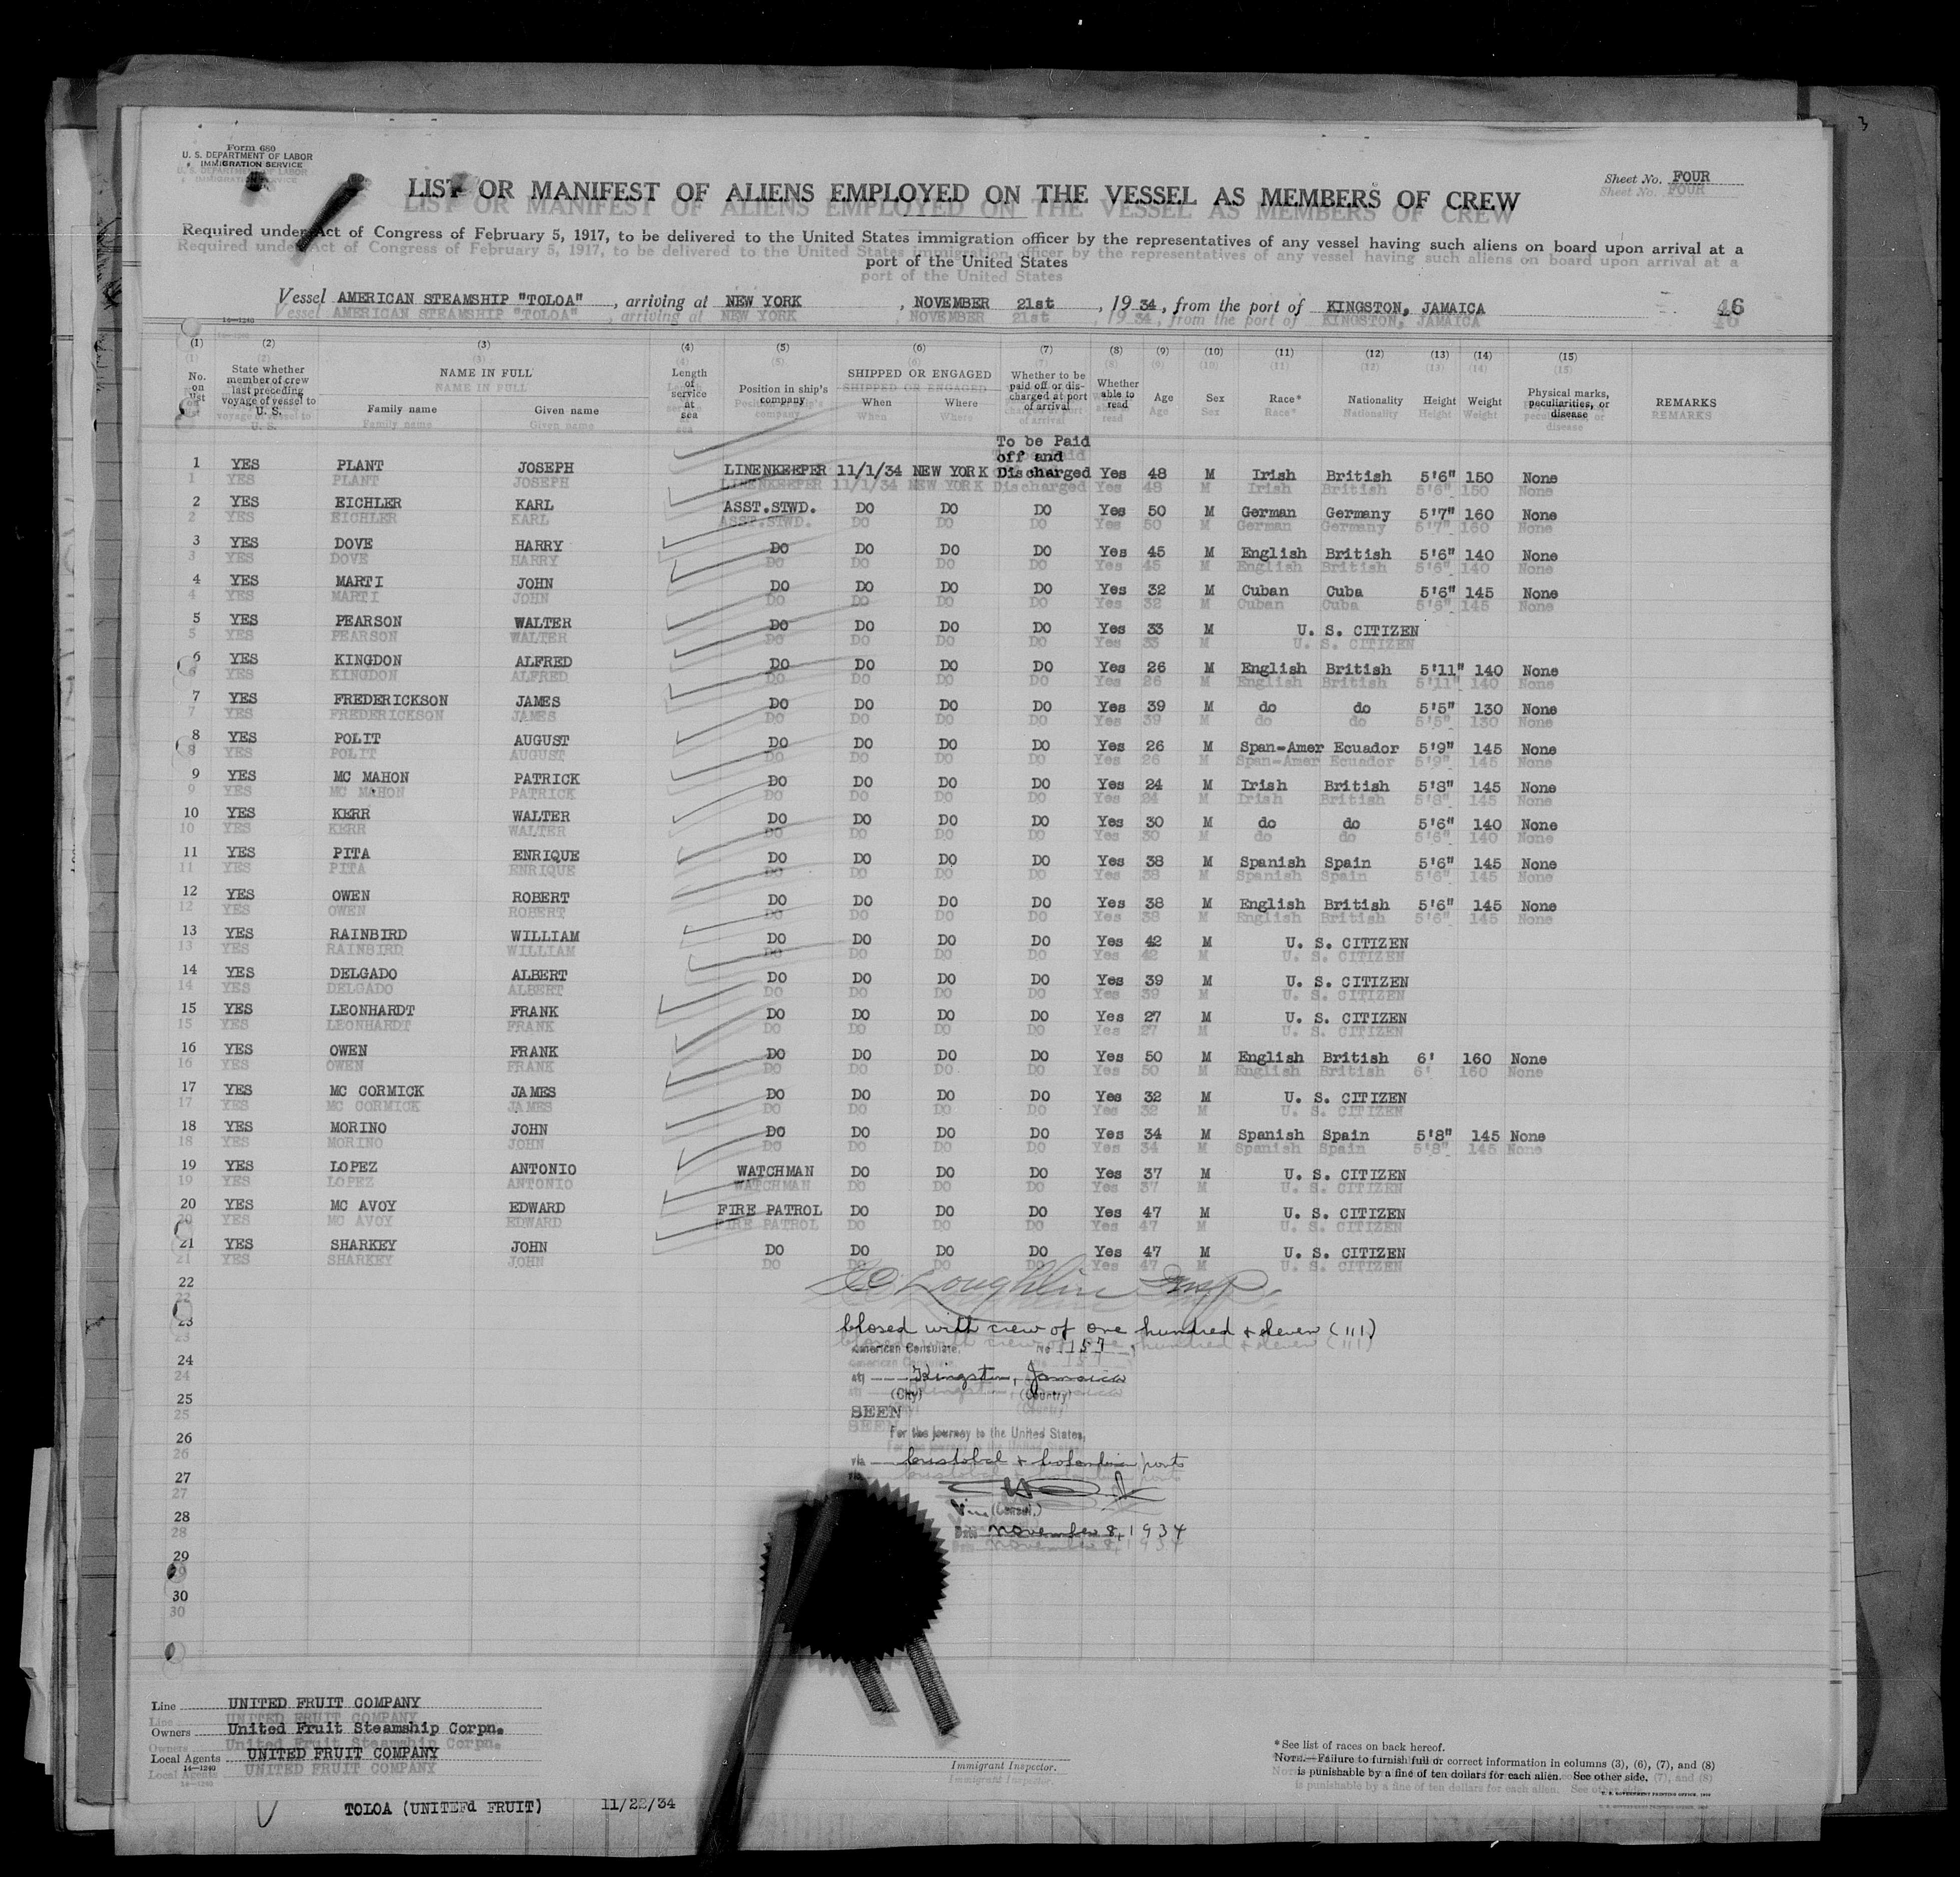 Form 680
U. S. DEPARTMENT OF LABOR
IMMIGRATION SERVICE
Sheet No. FOUR
LIST OR MANIFEST OF ALIENS EMPLOYED ON THE VESSEL AS MEMBERS OF CREW
Required under Act of Congress of February 5, 1917, to be delivered to the United States immigration officer by the representatives of any vessel having such aliens on board upon arrival at a
port of the United States
Vessel AMERICAN STEAMSHIP "TOLOA", arriving at NEW YORK, NOVEMBER 21st, 1934, from the port of KINGSTON, JAMAICA 46
16-1240
(1) (2) (3) (4) (5) (6) (7) (8) (9) (10) (11) (12) (13) (14) (15)
No. on list State whether member of crew last preceding voyage of vessel to U. S. NAME IN FULL Family name Given name Length of service at sea Position in ship's company SHIPPED OR ENGAGED When Where Whether to be paid off or discharged at port of arrival Whether able to read Age Sex Race* Nationality Height Weight Physical marks, peculiarities, or disease REMARKS
To be Paid
off and
1 YES PLANT JOSEPH LINENKEEPER 11/1/34 NEW YORK Discharged Yes 48 M Irish British 5'6" 150 None
2 YES EICHLER KARL ASST.STWD. DO DO DO Yes 50 M German Germany 5'7" 160 None
3 YES DOVE HARRY DO DO DO DO Yes 45 M English British 5'6" 140 None
4 YES MARTI JOHN DO DO DO DO Yes 32 M Cuban Cuba 5'6" 145 None
5 YES PEARSON WALTER DO DO DO DO Yes 33 M U. S. CITIZEN
6 YES KINGDON ALFRED DO DO DO DO Yes 26 M English British 5'11" 140 None
7 YES FREDERICKSON JAMES DO DO DO DO Yes 39 M do do 5'5" 130 None
8 YES POLIT AUGUST DO DO DO DO Yes 26 M Span-Amer Ecuador 5'9" 145 None
9 YES MC MAHON PATRICK DO DO DO DO Yes 24 M Irish British 5'8" 145 None
10 YES KERR WALTER DO DO DO DO Yes 30 M do do 5'6" 140 None
11 YES PITA ENRIQUE DO DO DO DO Yes 38 M Spanish Spain 5'6" 145 None
12 YES OWEN ROBERT DO DO DO DO Yes 38 M English British 5'6" 145 None
13 YES RAINBIRD WILLIAM DO DO DO DO Yes 42 M U. S. CITIZEN
14 YES DELGADO ALBERT DO DO DO DO Yes 39 M U. S. CITIZEN
15 YES LEONHARDT FRANK DO DO DO DO Yes 27 M U. S. CITIZEN
16 YES OWEN FRANK DO DO DO DO Yes 50 M English British 6' 160 None
17 YES MC CORMICK JAMES DO DO DO DO Yes 32 M U. S. CITIZEN
18 YES MORINO JOHN DO DO DO DO Yes 34 M Spanish Spain 5'8" 145 None
19 YES LOPEZ ANTONIO WATCHMAN DO DO DO Yes 37 M U. S. CITIZEN
20 YES MC AVOY EDWARD FIRE PATROL DO DO DO Yes 47 M U. S. CITIZEN
21 YES SHARKEY JOHN DO DO DO DO Yes 47 M U. S. CITIZEN
22
23 Closed with crew of one hundred & eleven (111)
American Consulate, No 157
24 at Kingston, Jamaica
(City) (Country)
25 SEEN
26 For the journey to the United States,
via Cristobal & Colombian ports
27
Vice (Consul.)
28 Date November 8, 1934
29
30
Line UNITED FRUIT COMPANY
Owners United Fruit Steamship Corpn.
Local Agents UNITED FRUIT COMPANY
16-1240
Immigrant Inspector.
*See list of races on back hereof.
NOTE.—Failure to furnish full or correct information in columns (3), (6), (7), and (8)
is punishable by a fine of ten dollars for each alien. See other side.
TOLOA (UNITEFd FRUIT) 11/22/34